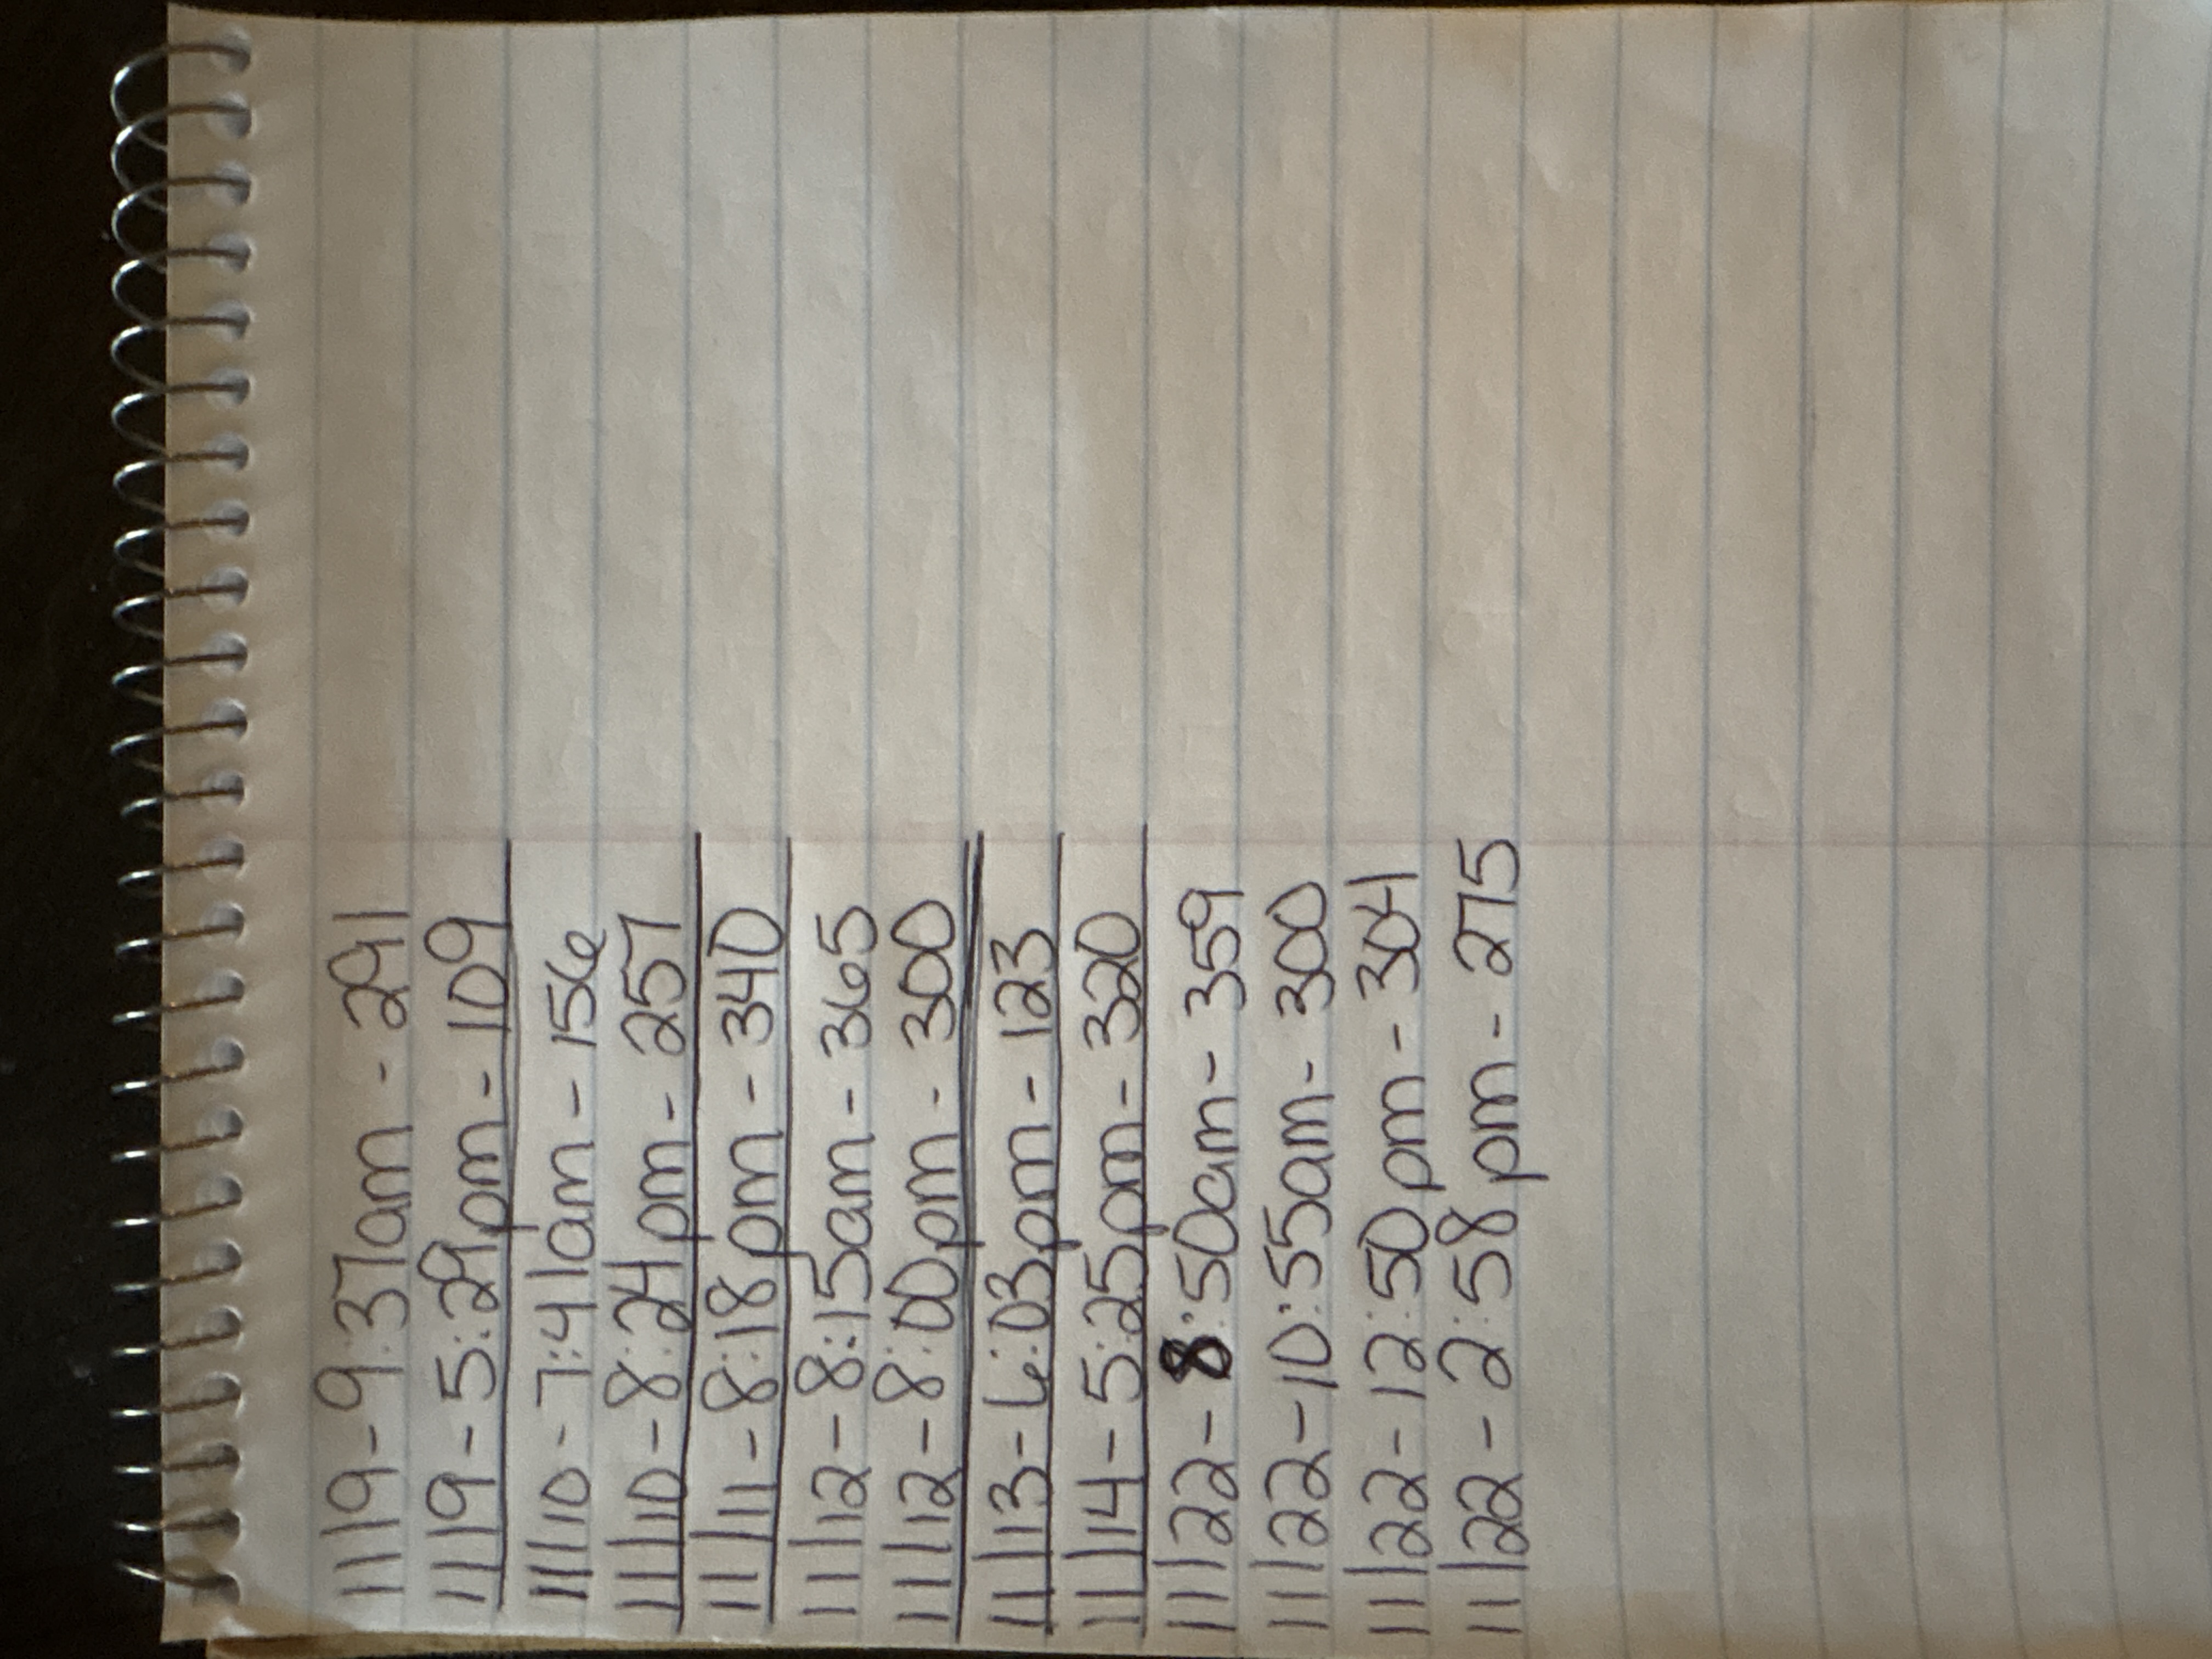 11/9 - 9:37am - 291
11/9 - 5:29pm - 109
11/10 - 7:41am - 156
11/10 - 8:24pm - 257
11/11 - 8:18pm - 340
11/12 - 8:15am - 365
11/12 - 8:00pm - 300
11/13 - 6:03pm - 123
11/14 - 5:25pm - 320
11/22 - 8:50am - 359
11/22 - 10:55am - 300
11/22 - 12:50pm - 304
11/22 - 2:58pm - 275